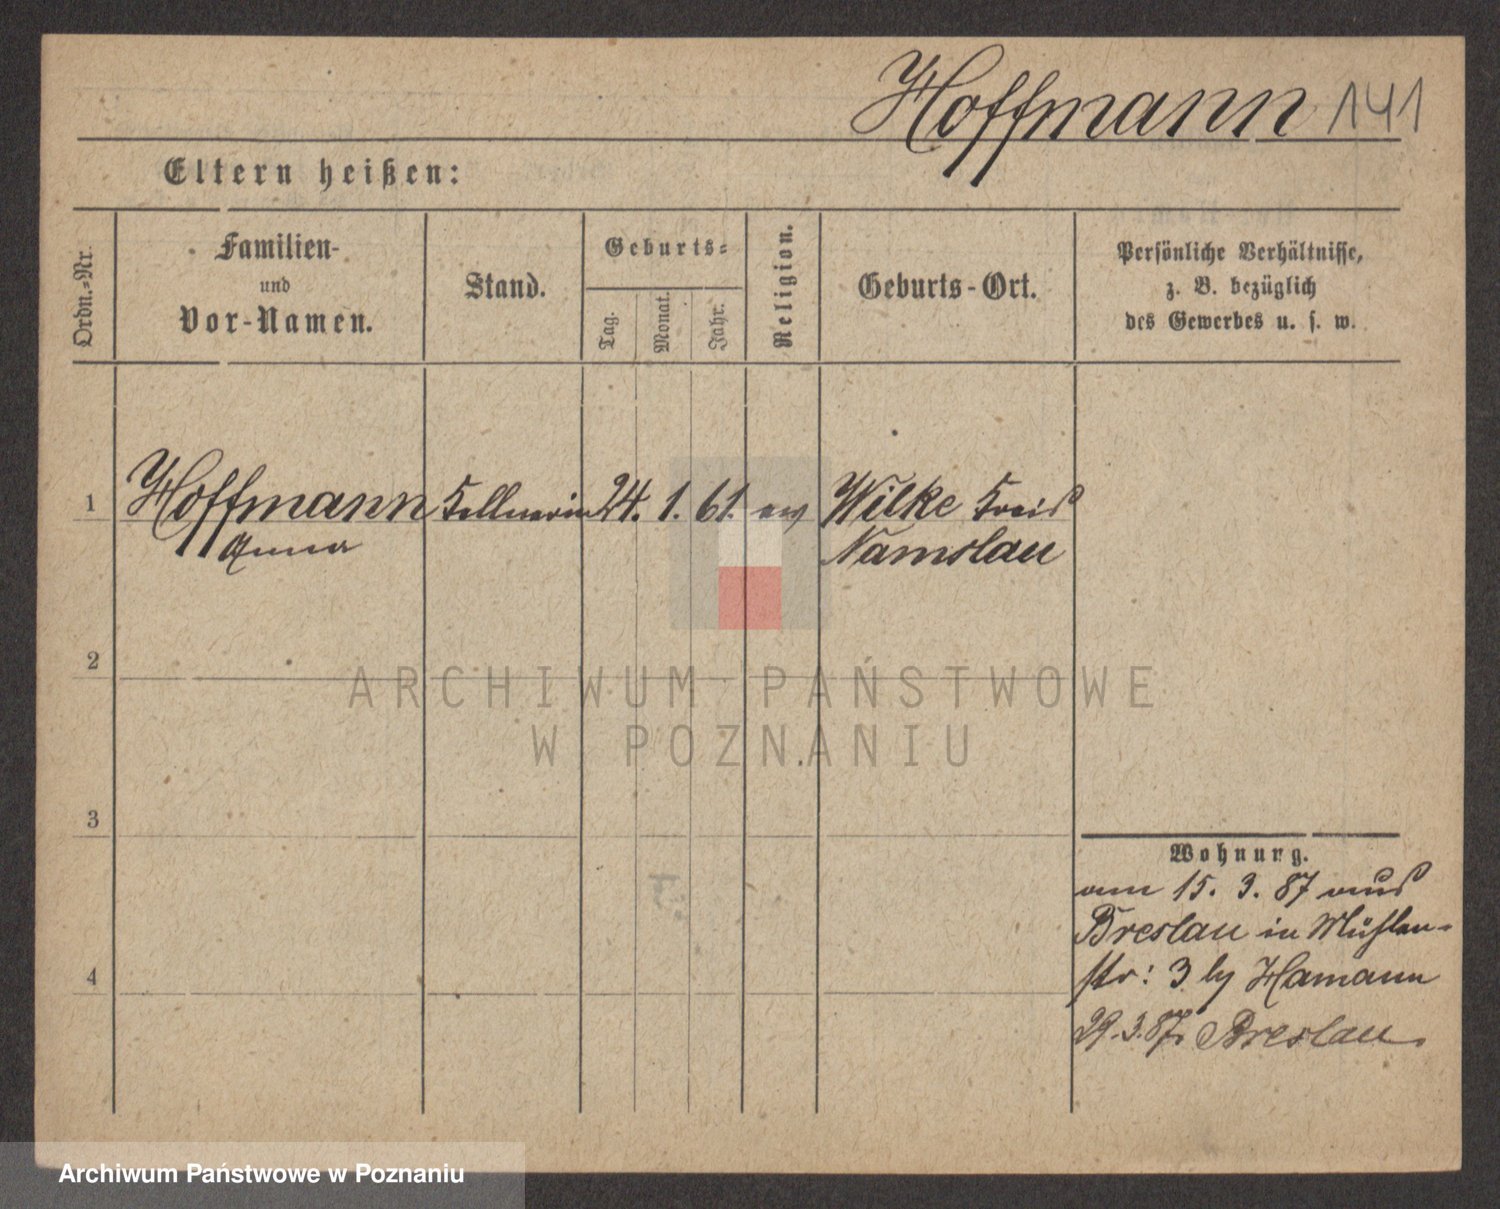 Hoffmann 141
Eltern heißen:
Ordn.-Nr.
Familien-
und
Vor-Namen.
Stand.
Geburts-
Tag.
Monat.
Jahr.
Religion.
Geburts-Ort.
Persönliche Verhältnisse,
z. B. bezüglich
des Gewerbes u. s. w.
1 Hoffmann Kellnerin 24. 1. 61. ev Wilke Kreis
Anna Namslau
2
ARCHIWUM PAŃSTWOWE
W POZNANIU
3
Wohnung.
am 15. 3. 87 aus
Breslau in Mühlen-
str: 3 by Hamann
4
29.3.87. Breslau.
Archiwum Państwowe w Poznaniu